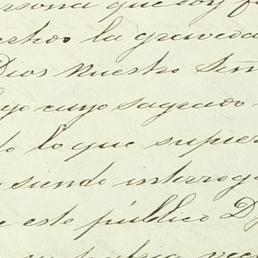 persona que soy f
estado la graveda
Dios Nuestro Señ
bajo cuyo sagrado
de lo que supier
siendo interroga
este público D